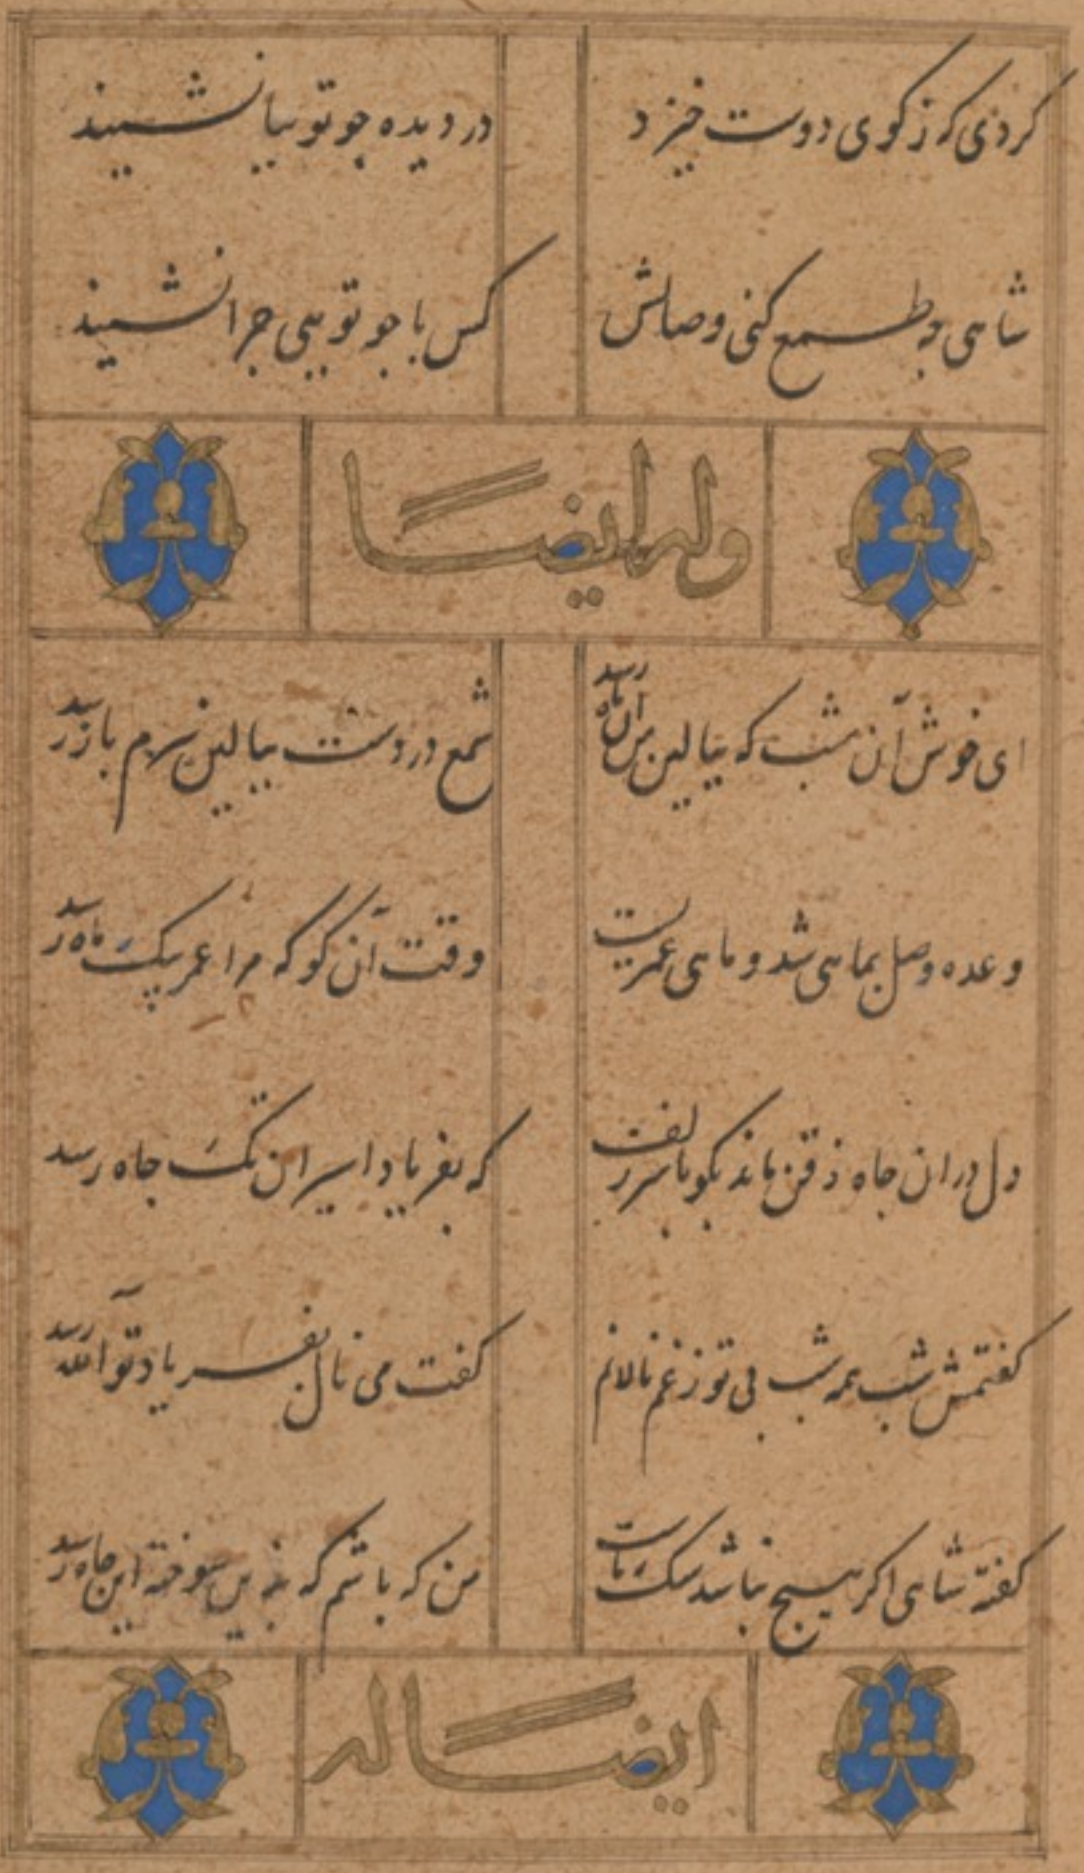 کردی که ز کوی دوست خیزد
در دیده جو توتیا نشیند
شاهی جه طمع کنی وصالش
کس با جو تویی جرا نشیند
وله ایضا
ای خوش آن شب که ببالین من آن ماه رسد
شمع در دست ببالین سرم باز رسد
وعده وصل بماهی شد و ماهی عمریست
وقت آن کو که مرا عمر بیک ماه رسد
دل در ان جاه ذقن ماند بکو با سر زلفت
که بفریاد اسیران تک جاه رسد
کفتمش شب همه شب بی تو ز غم نالانم
کفت می نال بفریاد تو آلله رسد
کفته شاهی اکر هیچ نباشد سک ماست
من که باشم که بدین سوخته این جاه رسد
ایضا له